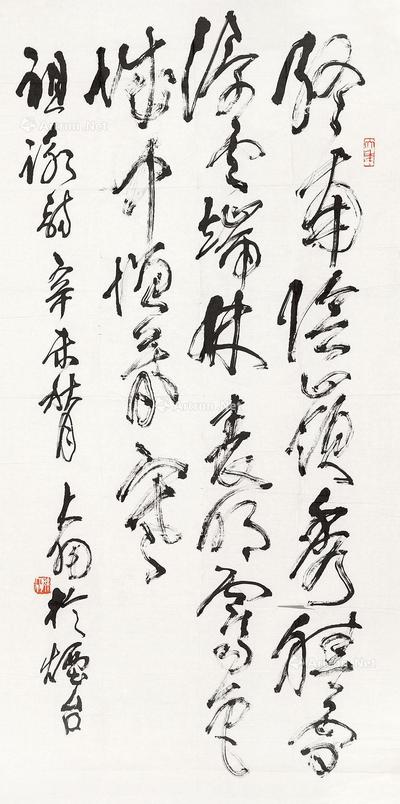 終南陰嶺秀積雪
浮雲端林表明霽色
城中增暮寒
祖詠詩 辛未 月 上 於煙台
Artron.Net